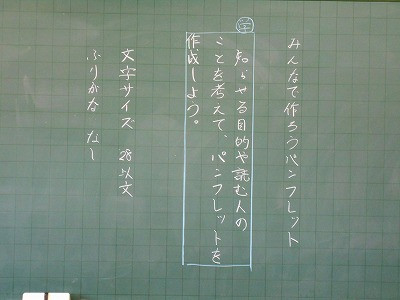 みんなで作ろうパンフレット
学
知らせる目的や読む人の
ことを考えて、パンフレットを
作成しよう。
文字サイズ 28以文
ふりがな なし